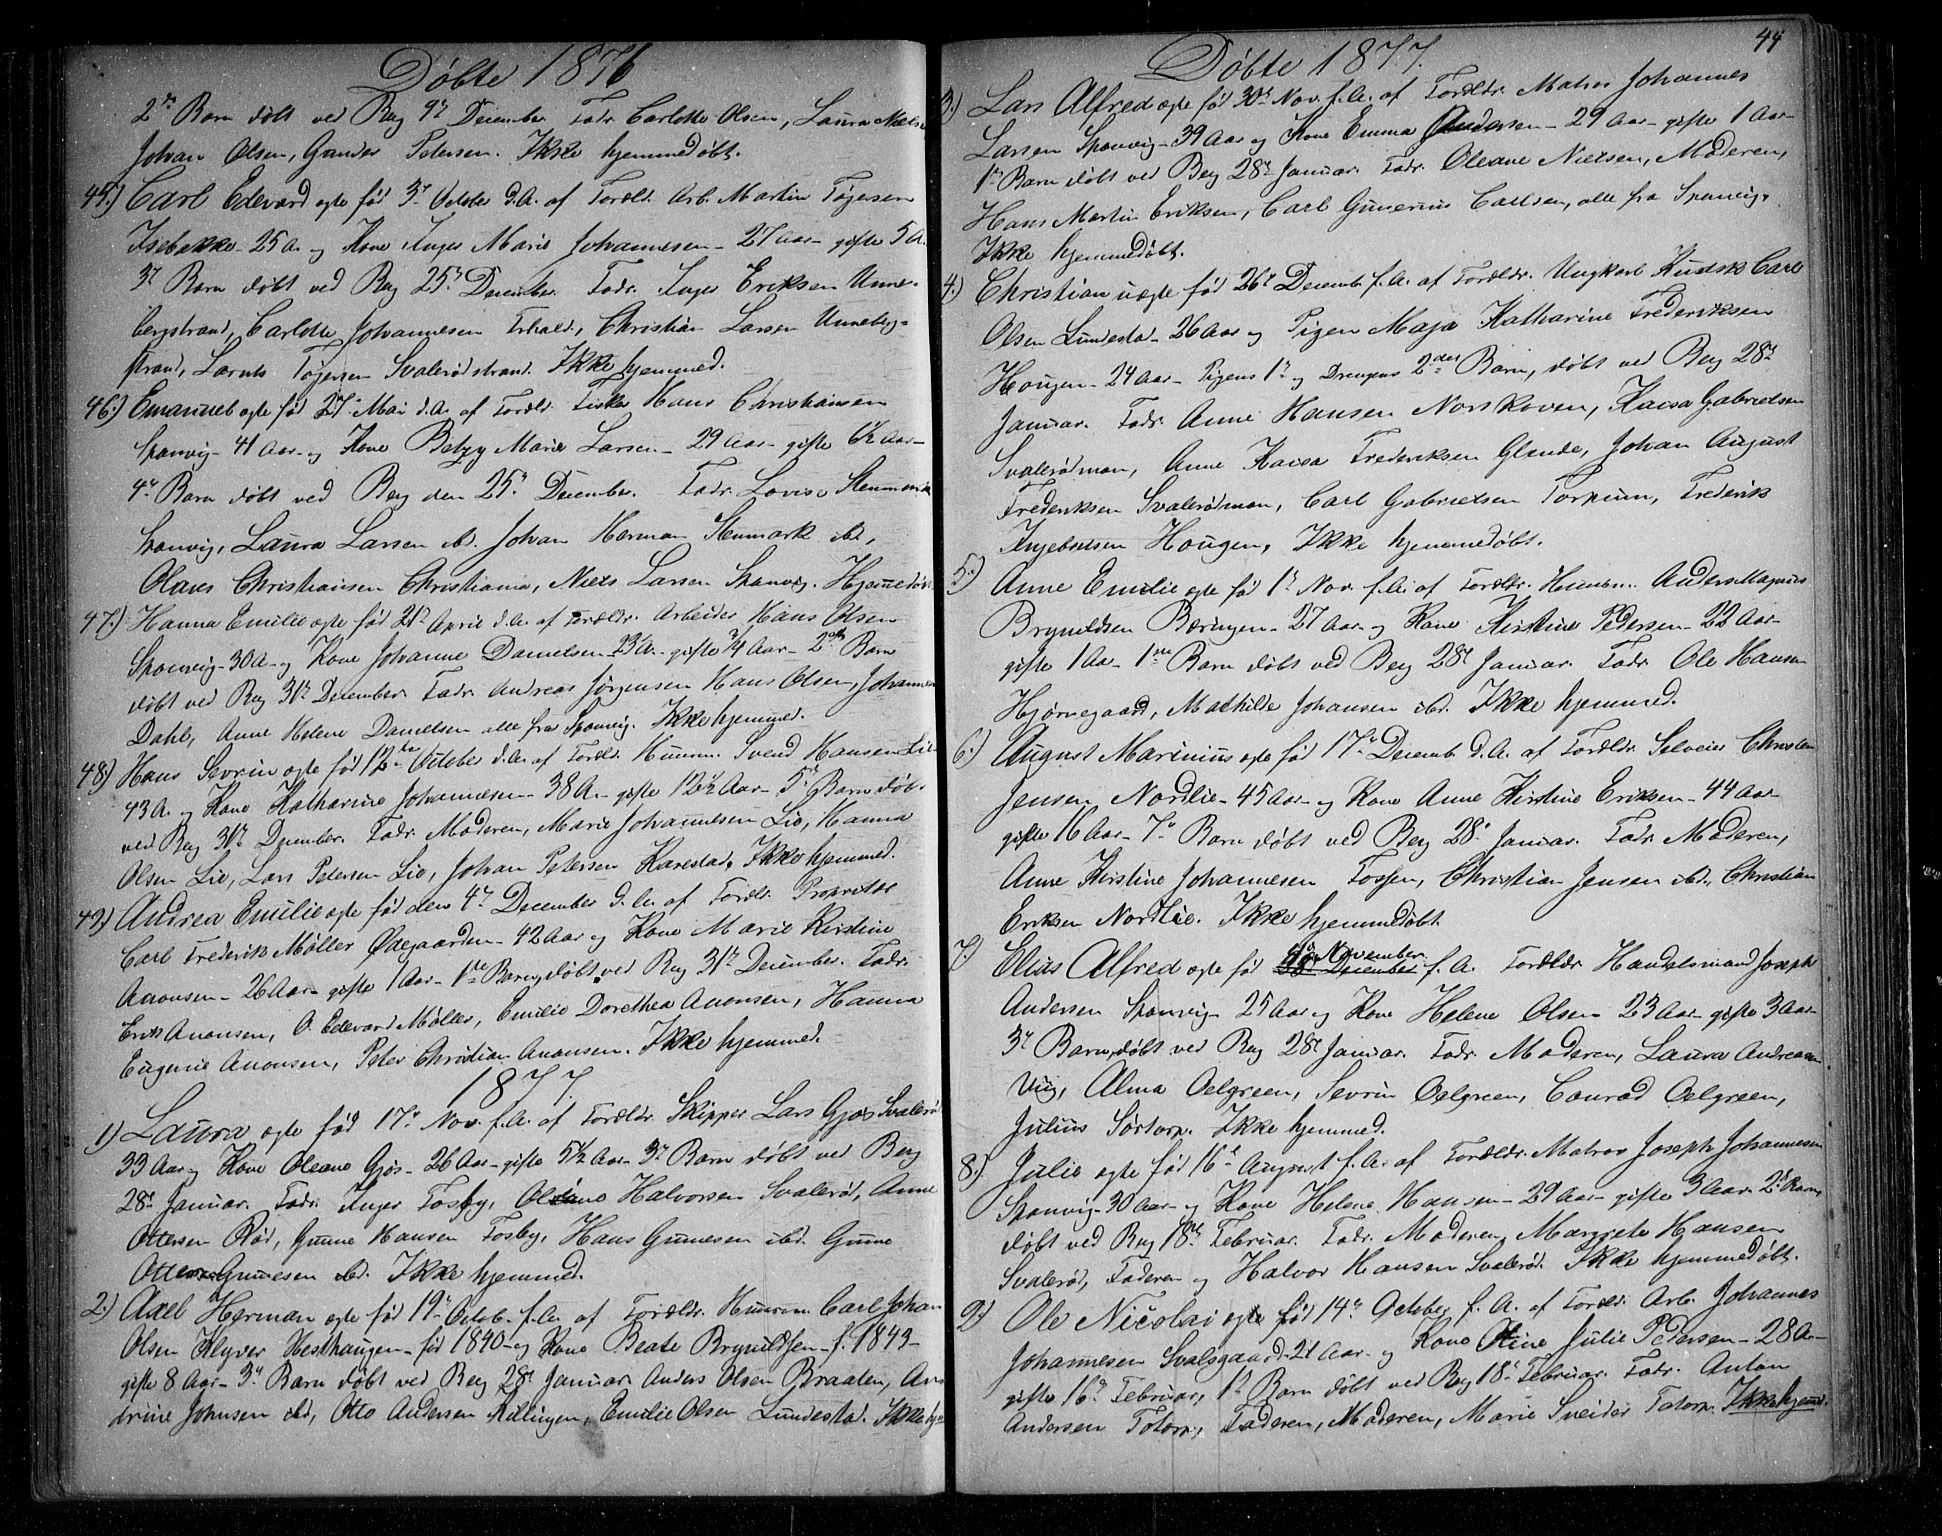 Døbte 1876
2det Barn døbt ved Berg 9de December Fadr. Carlotte Olsen, Laura
Johan Olsen, Petersen. Ikke hjemmedøbt.
45.) Carl Edevard ægte født 3die October d.A. af Forældr. Arb. Martin Tøgersen
Isebakke - 25 A. og Kone Inger Marie Johannesen - 27 Aar - gifte 5 A.
3die Barn døbt ved Berg 25de December Fadr. Inger Eriksen Unne-
bergstrand, Carlotte Johannesen, Christian Larsen Unneberg-
strand, Tøgersen Svalerødstrand. Ikke hjemmed.
46.) Emanuel ægte født 27de Mai d.A. af Forældr. Fisker Hans Christiansen
Sponvig - 41 Aar - og Kone Betzy Marie Larsen - 29 Aar - gifte 6½ Aar -
4de Barn døbt ved Berg den 25de December. Fadr. Lovise
Sponvig, Laura Larsen ibd. Johan Herman Stenmark ibd.,
Olaves Christiansen Christiania, Niels Larsen Sponvig. Hjemmedøbt
47.) Hanna Emilie ægte født 21de April d.A. af Forældr. Arbeider Hans Olsen
Sponvig - 30 A - og Kone Johanne Danielsen - 23 A. - gifte ¾ Aar - 2det Barn
døbt ved Berg 31te December. Fadr. Andreas Jørgensen Hans Olsen, Johannes
Dahl, Anne Helene Danielsen alle fra Sponvig. Ikke hjemmed.
48.) Hans Sevrin ægte født 12te October d.A. af Forældr. Huusm. Svend Hansen Lie
43 A. og Kone Katharine Johannesen - 38 A. - gifte 12½ Aar - 5te Barn døbt
ved Berg 31te December. Fadr. Moderen, Marie Johannesen Lie, Hanna
Olsen Lie, Lars Petersen Lie, Johan Petersen Karestad. Ikke hjemmed.
49.) Andrea Emilie ægte født den 4de December d.A. af Forældr. Proprietær
Carl Frederik Møller Ødegaarden - 42 Aar og Kone Marie Kirstine
Anonsen - 26 Aar - gifte 1 Aar - 1ste Barn, døbt ved Berg 31te December. Fadr.
Erik Anonsen, O. Edevard Møller, Emilie Dorethea Anonsen, Hanna
Eugenie Anonsen, Peter Christian Anonsen. Ikke hjemmed.
1877.
1) Laura ægte født 17de Nov. f.A. af Forældr. Skipper Lars Gjøs Svalerød
33 Aar og Kone Oleane Gjøs - 26 Aar - gifte 5½ Aar - 3die Barn døbt ved Berg
28de Januar. Fadr. Inger Fosby, Halvorsen Svalerød, Anne
Ottersen Rød, Gunne Hansen Fosby, Hans Gunnesen ibd. Gunne
Gunnesen ibd. Ikke hjemmed.
2.) Axel Herman ægte født 19de Octob. f.A. af Forældr. Huusm. Carl Johan
Olsen Klyver Hesthaugen - født 1840 - og Kone Beate Brynildsen - f. 1843 -
gifte 8 Aar - 3die Barn døbt ved Berg 28de Januar. Anders Olsen Braaten, An-
drine Johnsen ibd, Otto Andersen Killingen, Emilie Olsen Lundestad. Ikke
44
Døbte 1877.
3.) Lars Alfred ægte født 30te Nov. f.A. af Forældr. Matros Johannes
Larsen Sponvig - 39 Aar og Kone Emma Andersen - 29 Aar - gifte 1 Aar -
1ste Barn døbt ved Berg 28de Januar. Fadr. Oleane Nielsen, Moderen,
Hans Martin Eriksen, Carl Gunerius Carlsen, alle fra Sponvig.
Ikke hjemmedøbt.
4.) Christian uægte født 26de Decemb. f.A. af Forældr. Ungkarl Kudsk Carl
Olsen Lundestad - 26 Aar og Pigen Maja Katharine Frederiksen
Hougen - 24 Aar - Pigens 1ste og Drengens 2det Barn, døbt ved Berg 28de
Januar. Fadr. Anne Hansen Norskoven, Kaisa Gabrielsen
Svalerødmon, Anne Kaisa Frederiksen Glende, Johan August
Frederiksen Svalerødmon, Carl Gabrielsen Torpum, Frederik
Ingebretsen Hougen, Ikke hjemmedøbt.
5.) Anne Emilie ægte født 1ste Nov. f.A. af Forældr. Huusm. Anders Magnus
Brynildsen Bæringen - 27 Aar - og Kone Kirstine Pedersen - 22 Aar -
gifte 1 Aar - 1ste Barn døbt ved Berg 28de Januar. Fadr. Ole Hansen
Hjørnegaard, Mathilde Johansen ibd. Ikke hjemmed.
6.) August Marinius ægte født 17de Decemb. d.A. af Forældr. Selveier Christen
Jensen Nordlie - 45 Aar - og Kone Anne Kirstine Eriksen - 44 Aar
gifte 16 Aar - 7de Barn døbt ved Berg 28de Januar. Fadr. Moderen,
Anne Kirstine Johannesen Fossen, Christian Jensen ibd., Christian
Eriksen Nordlie. Ikke hjemmedøbt.
7.) Elias Alfred ægte født November f.A. Forældr. Handelsmand Joseph
Andersen Sponvig - 25 Aar og Kone Helene Olsen 23 Aar - gifte 3 Aar -
3die Barn, døbt ved Berg 28de Januar. Fadr. Moderen, Laura Andreasen
Vig, Alma Oelgreen, Sevrin Oelgreen, Conrad Oelgreen,
Julius Sørtorp. Ikke hjemmed.
8.) Julie ægte født 16de August f.A. af Forældr. Matros Joseph Johannesen
Sponvig - 30 Aar - og Kone Helene Hansen - 29 Aar - gifte 3 Aar. 2det Barn,
døbt ved Berg 18de Februar. Fadr. Moderen, Margrete Hansen
Svalerød, Faderen og Halvor Hansen Svalerød. Ikke hjemmedøbt.
9.) Ole Nicolai ægte født 14de October f.A. af Forældr. Arb. Johannes
Johannesen Svalsgaard - 21 Aar - og Kone Oline Julie Pedersen - 28 A -
gifte 16de Februar, 1ste Barn døbt ved Berg 18de Februar. Fadr. Anton
Andersen Totorp, Faderen, Moderen, Marie Sneider Totorp. Ikke hjemd.